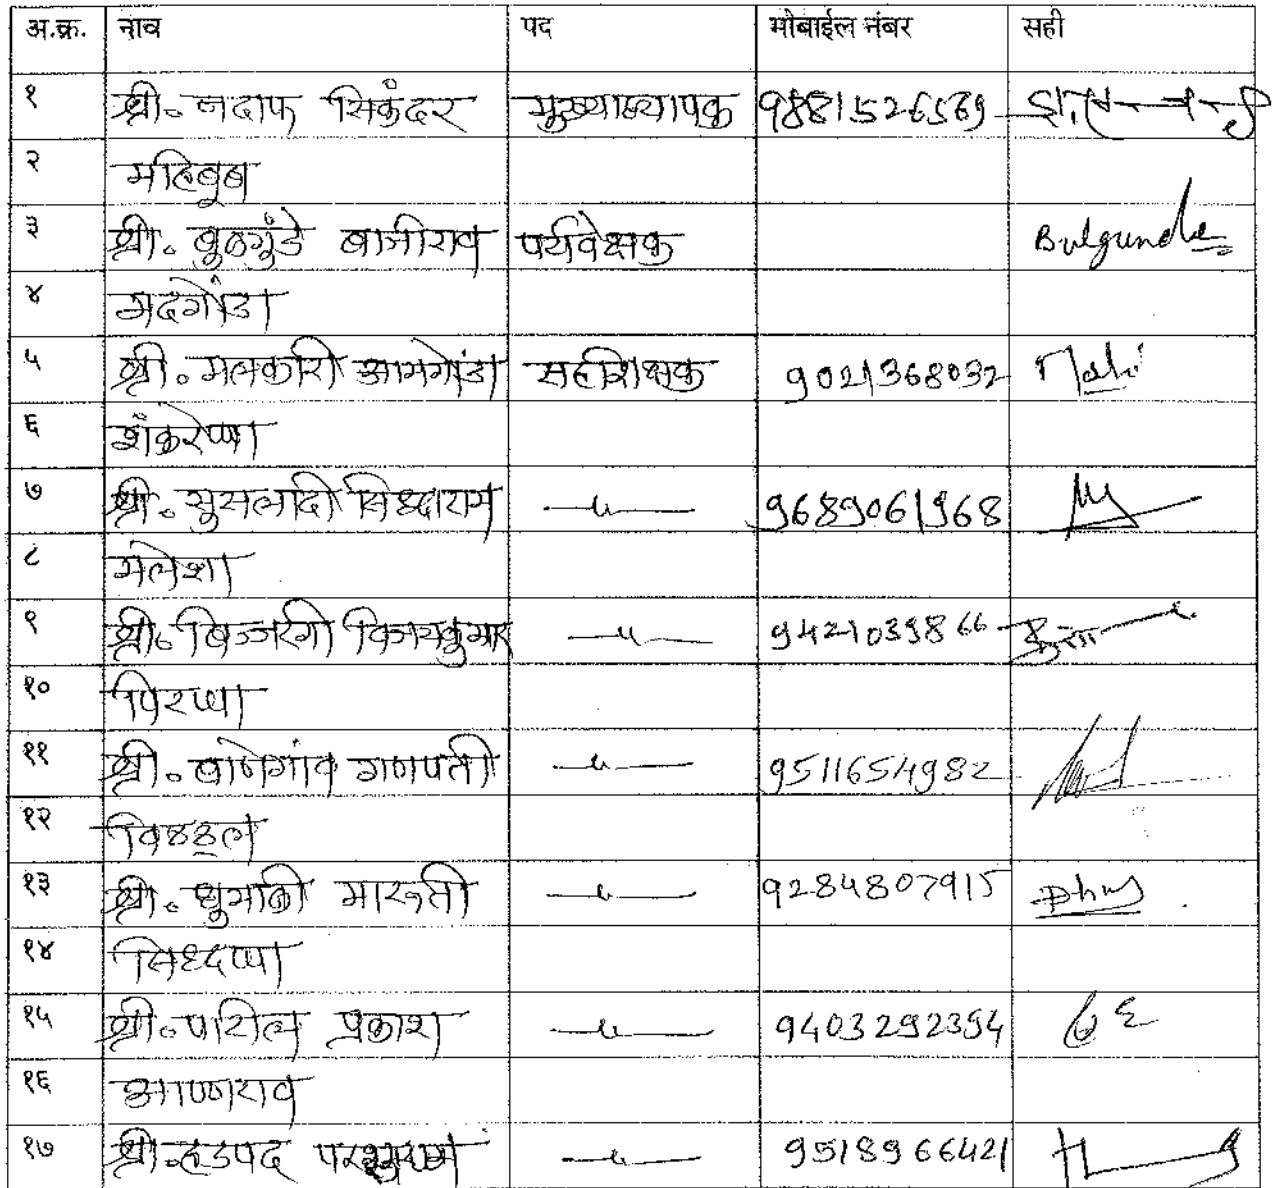 अ.क्र. नाव पद मोबाईल नंबर सही
१ श्री. नदाफ सिकंदर मुख्याध्यापक 9881526569
२ महिबूब
३ श्री. बुळगुंडे बाजीराव पर्यवेक्षक Bulgunde
४ मदगोंडा
५ श्री. मलकारी आमगोंडा सहशिक्षक 9021368032 Mali
६ शंकरेप्पा
७ श्री. मुसलादी सिध्दाराम —"— 9689061968
८ मलेशा
९ श्री. बिज्जरगी विजयकुमार —"— 9421039866
१० पिरप्पा
११ श्री. बाणेगांव गणपती —"— 9511654982
१२ विठ्ठल
१३ श्री. धुमाळी मारुती —"— 9284807915
१४ सिध्दप्पा
१५ श्री. पाटील प्रकाश —"— 9403292394
१६ आण्णाराव
१७ श्री. हडपद परशुराम —"— 9518966421